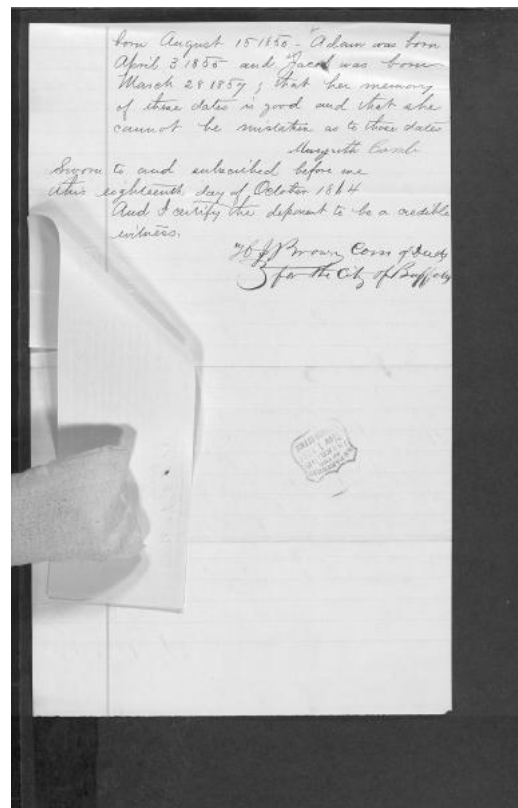 born August 15 1850 - Adam was born
April 3 1855 and Jacob was born
March 28 1857; that her memory
of these dates is good and that she
cannot be mistaken as to those dates
Sworn to and subscribed before me
this eighteenth day of October 1864
And I certify the deponent to be a credible
witness.
Brown Com of Deeds
for the City of Buffalo